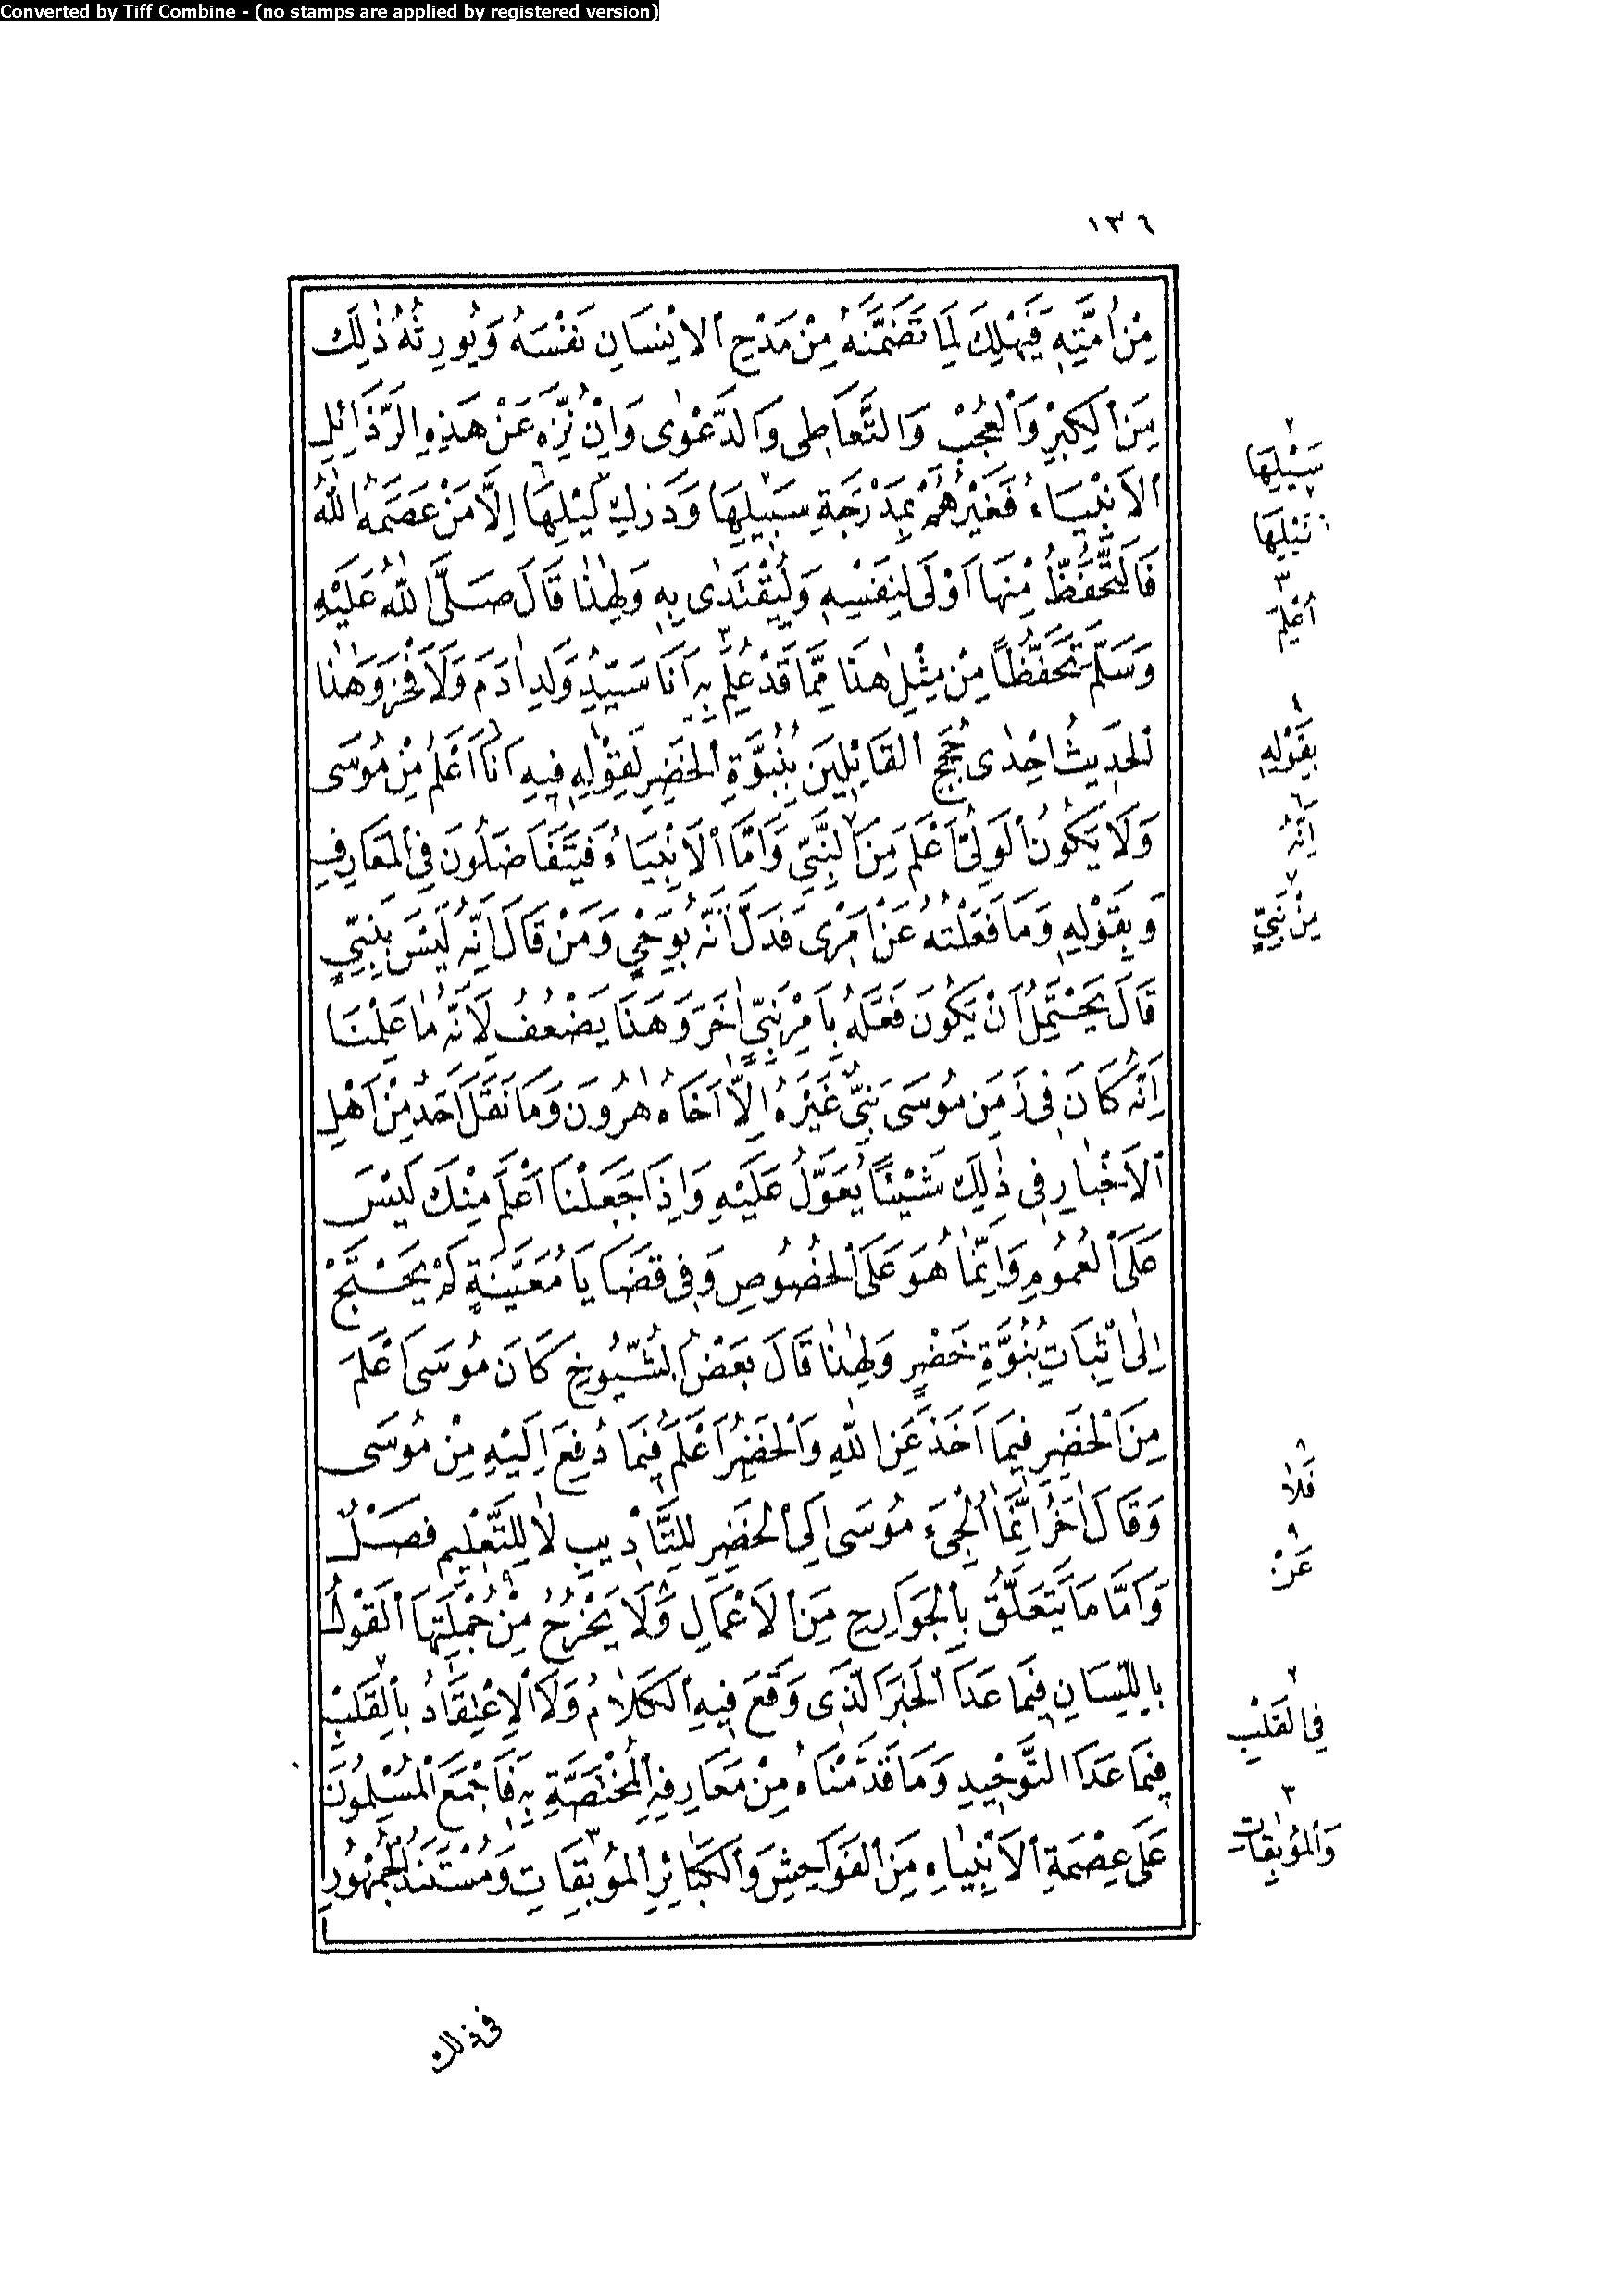 Converted by Tiff Combine - (no stamps are applied by registered version)
١٣٦
مِنْ اُمَّتِهِ فَيَهْلِكَ لِمَا تَضَمَّنَهُ مِنْ مَدْحِ الْاِنْسَانِ نَفْسَهُ وَيُورِثُهُ ذٰلِكَ
مِنَ الْكِبْرِ وَالْعُجْبِ وَالتَّعَاطِى وَالدَّعْوٰى وَاِنْ نُزِّهَ عَنْ هَذِهِ الرَّذَائِلِ
الْاَنْبِيَاءُ فَغَيْرُهُمْ بِمَدْرَجَةِ سَبِيلِهَا وَدَرَكِ لَيْلِهَا اِلَّا مَنْ عَصَمَهُ اللّٰهُ
فَالتَّحَفُّظُ مِنْهَا اَوْلَى لِنَفْسِهِ وَلِيُقْتَدٰى بِهِ وَلِهٰذَا قَالَ صَلَّى اللّٰهُ عَلَيْهِ
وَسَلَّمَ تَحَفُّظًا مِنْ مِثْلِ هٰذَا مِمَّا قَدْ عُلِمَ بِهِ اَنَا سَيِّدُ وَلَدِ اٰدَمَ وَلَا فَخْرَ وَهٰذَا
الْحَدِيثُ اِحْدٰى حُجَجِ الْقَائِلِينَ بِنُبُوَّةِ الْخَضِرِ لِقَوْلِهِ فِيهِ اَنَا اَعْلَمُ مِنْ مُوسَى
وَلَا يَكُونُ الْوَلِىُّ اَعْلَمَ مِنَ النَّبِىِّ وَاَمَّا الْاَنْبِيَاءُ فَيَتَفَاضَلُونَ فِى الْمَعَارِفِ
وَبِقَوْلِهِ وَمَا فَعَلْتُهُ عَنْ اَمْرِى فَدَلَّ اَنَّهُ بِوَحْىٍ وَمَنْ قَالَ اِنَّهُ لَيْسَ بِنَبِىٍّ
قَالَ يَحْتَمِلُ اَنْ يَكُونَ فَعَلَهُ بِاَمْرِ نَبِىٍّ اٰخَرَ وَهَذَا يَضْعُفُ لِاَنَّهُ مَا عَلِمْنَا
اَنَّهُ كَانَ فِى زَمَنِ مُوسَى نَبِىٌّ غَيْرَهُ اِلَّا اَخَاهُ هٰرُونَ وَمَا نَقَلَ اَحَدٌ مِنْ اَهْلِ
الْاَخْبَارِ فِى ذٰلِكَ شَيْئًا يُعَوَّلُ عَلَيْهِ وَاِذَا جَعَلْنَا اَعْلَمَ مِنْكَ لَيْسَ
عَلَى الْعُمُومِ وَاِنَّمَا هُوَ عَلَى الْخُصُوصِ وَفِى قَضَايَا مُعَيَّنَةٍ لَمْ يَحْتَجْ
اِلٰى اِثْبَاتِ نُبُوَّةِ خَضِرٍ وَلِهٰذَا قَالَ بَعْضُ الشُّيُوخِ كَانَ مُوسَى اَعْلَمَ
مِنَ الْخَضِرِ فِيمَا اَخَذَ عَنِ اللّٰهِ وَالْخَضِرُ اَعْلَمُ فِيمَا دُفِعَ اِلَيْهِ مِنْ مُوسَى
وَقَالَ اٰخَرُ اِنَّمَا اُلْجِىءَ مُوسَى اِلَى الْخَضِرِ لِلتَّأْدِيبِ لَا لِلتَّعْلِيمِ فَصْلٌ
وَاَمَّا مَا يَتَعَلَّقُ بِالْجَوَارِحِ مِنَ الْاَعْمَالِ وَلَا يَخْرُجُ مِنْ جُمْلَتِهَا الْقَوْلُ
بِاللِّسَانِ فِيمَا عَدَا الْخَبَرَ الَّذِى وَقَعَ فِيهِ الْكَلَامُ وَلَا الْاِعْتِقَادُ بِالْقَلْبِ
فِيمَا عَدَا التَّوْحِيدِ وَمَا قَدَّمْنَاهُ مِنْ مَعَارِفِهِ الْمُخْتَصَّةِ بِهِ فَاَجْمَعَ الْمُسْلِمُونَ
عَلَى عِصْمَةِ الْاَنْبِيَاءِ مِنَ الْفَوَاحِشِ وَالْكَبَائِرِ الْمُوبِقَاتِ وَمُسْتَنَدُ الْجُمْهُورِ
٢
سَيْلِهَا
نَبْلِهَا
٣
اُعْلِمَ
٤
بِقَوْلِهِ
٦
اِنَّهُ
٧
مِنْ نَبِىٍّ
٨
فَلَا
٩
عَنْ
٢
فِى الْقَلْبِ
٣
وَالْمُوبِقَاتِ
فى ذلك